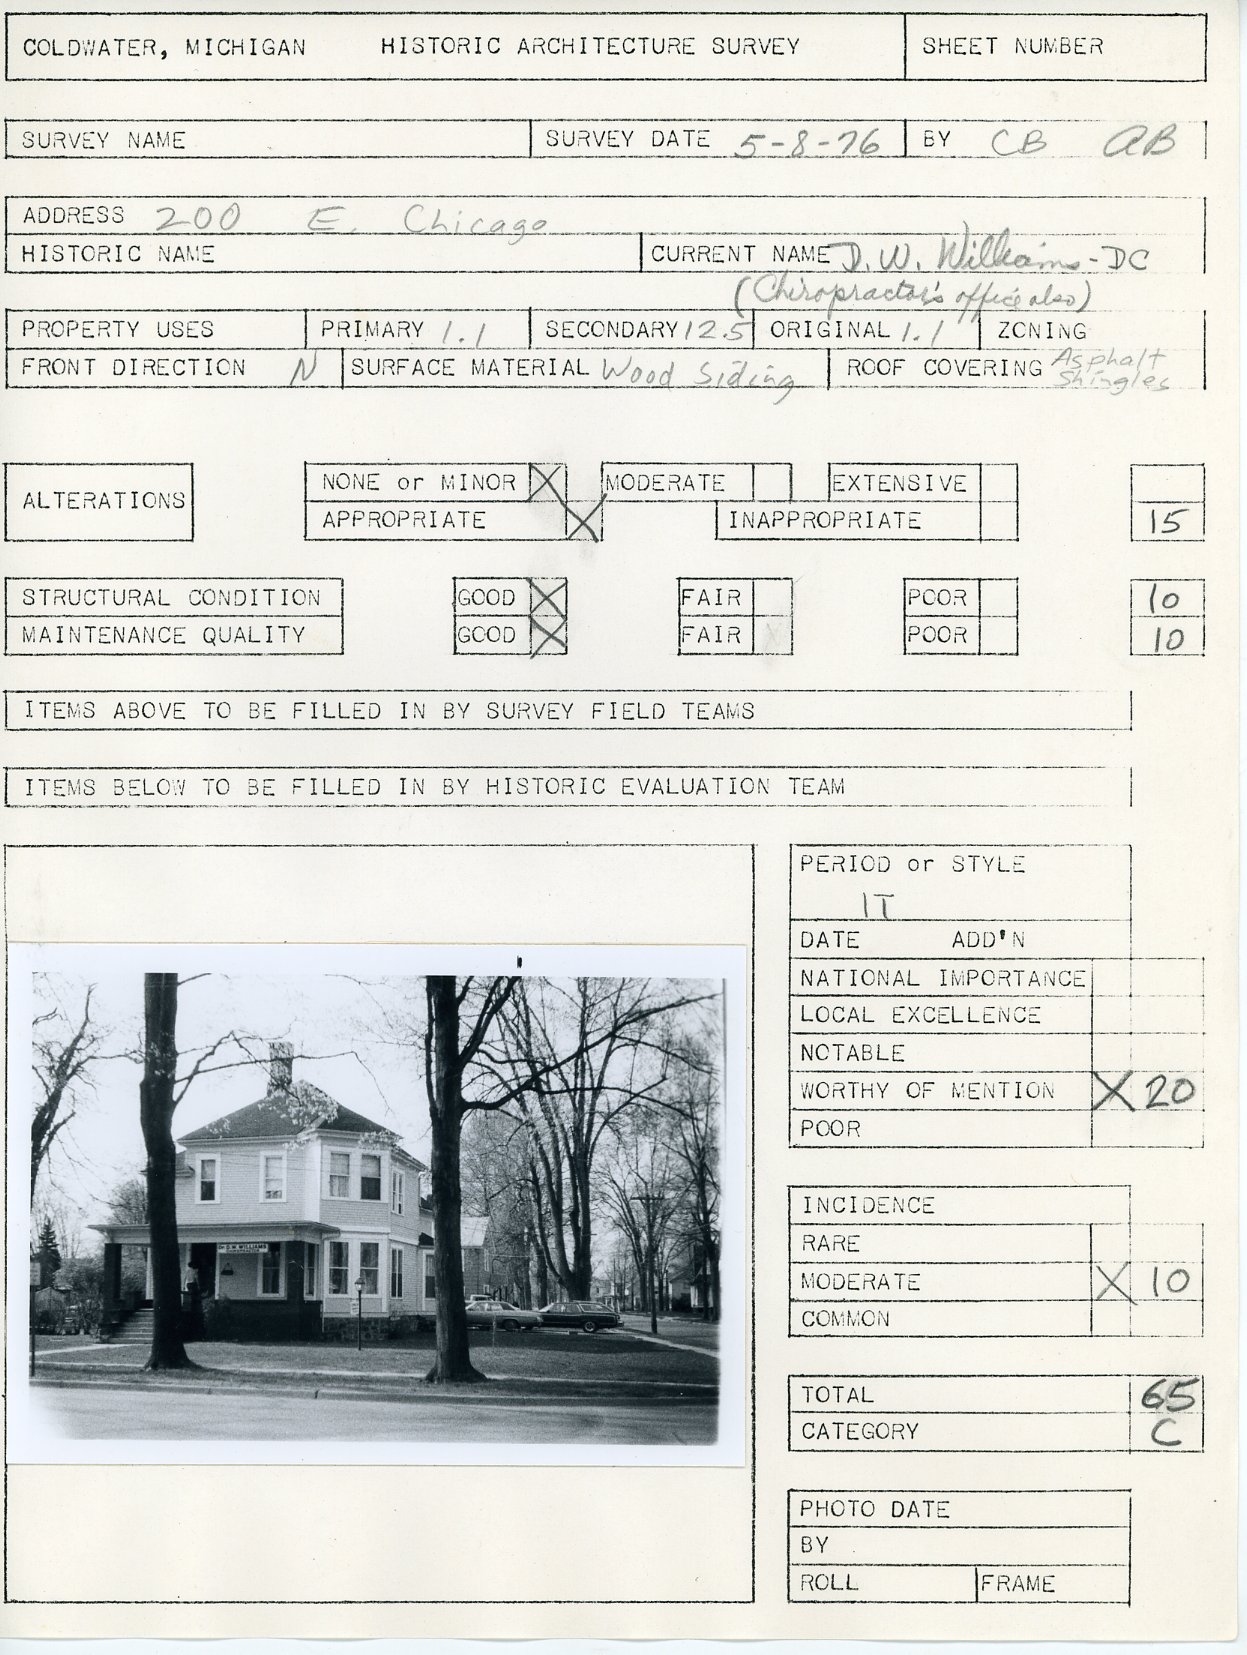 COLDWATER, MICHIGAN HISTORIC ARCHITECTURE SURVEY SHEET NUMBER
SURVEY NAME SURVEY DATE 5-8-76 BY CB AB
ADDRESS 200 E. Chicago
HISTORIC NAME CURRENT NAME D.W. Williams-DC
(Chiropractor's office also)
PROPERTY USES PRIMARY 1.1 SECONDARY 12.5 ORIGINAL 1.1 ZONING
FRONT DIRECTION N SURFACE MATERIAL Wood Siding ROOF COVERING Asphalt
Shingles
ALTERATIONS NONE or MINOR X MODERATE EXTENSIVE
APPROPRIATE X INAPPROPRIATE 15
STRUCTURAL CONDITION GOOD X FAIR POOR 10
MAINTENANCE QUALITY GOOD X FAIR X POOR 10
ITEMS ABOVE TO BE FILLED IN BY SURVEY FIELD TEAMS
ITEMS BELOW TO BE FILLED IN BY HISTORIC EVALUATION TEAM
PERIOD or STYLE
IT
DATE ADD'N
NATIONAL IMPORTANCE
LOCAL EXCELLENCE
NOTABLE
WORTHY OF MENTION X 20
POOR
INCIDENCE
RARE
MODERATE X 10
COMMON
TOTAL 65
CATEGORY C
PHOTO DATE
BY
ROLL FRAME
Dr. D.W. WILLIAMS